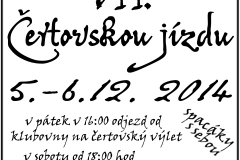 VII.
Čertovskou jízdu
5.-6.12. 2014
v pátek v 16:00 odjezd od
klubovny na čertovský výlet
v sobotu od 18:00 hod
spacáky
s sebou